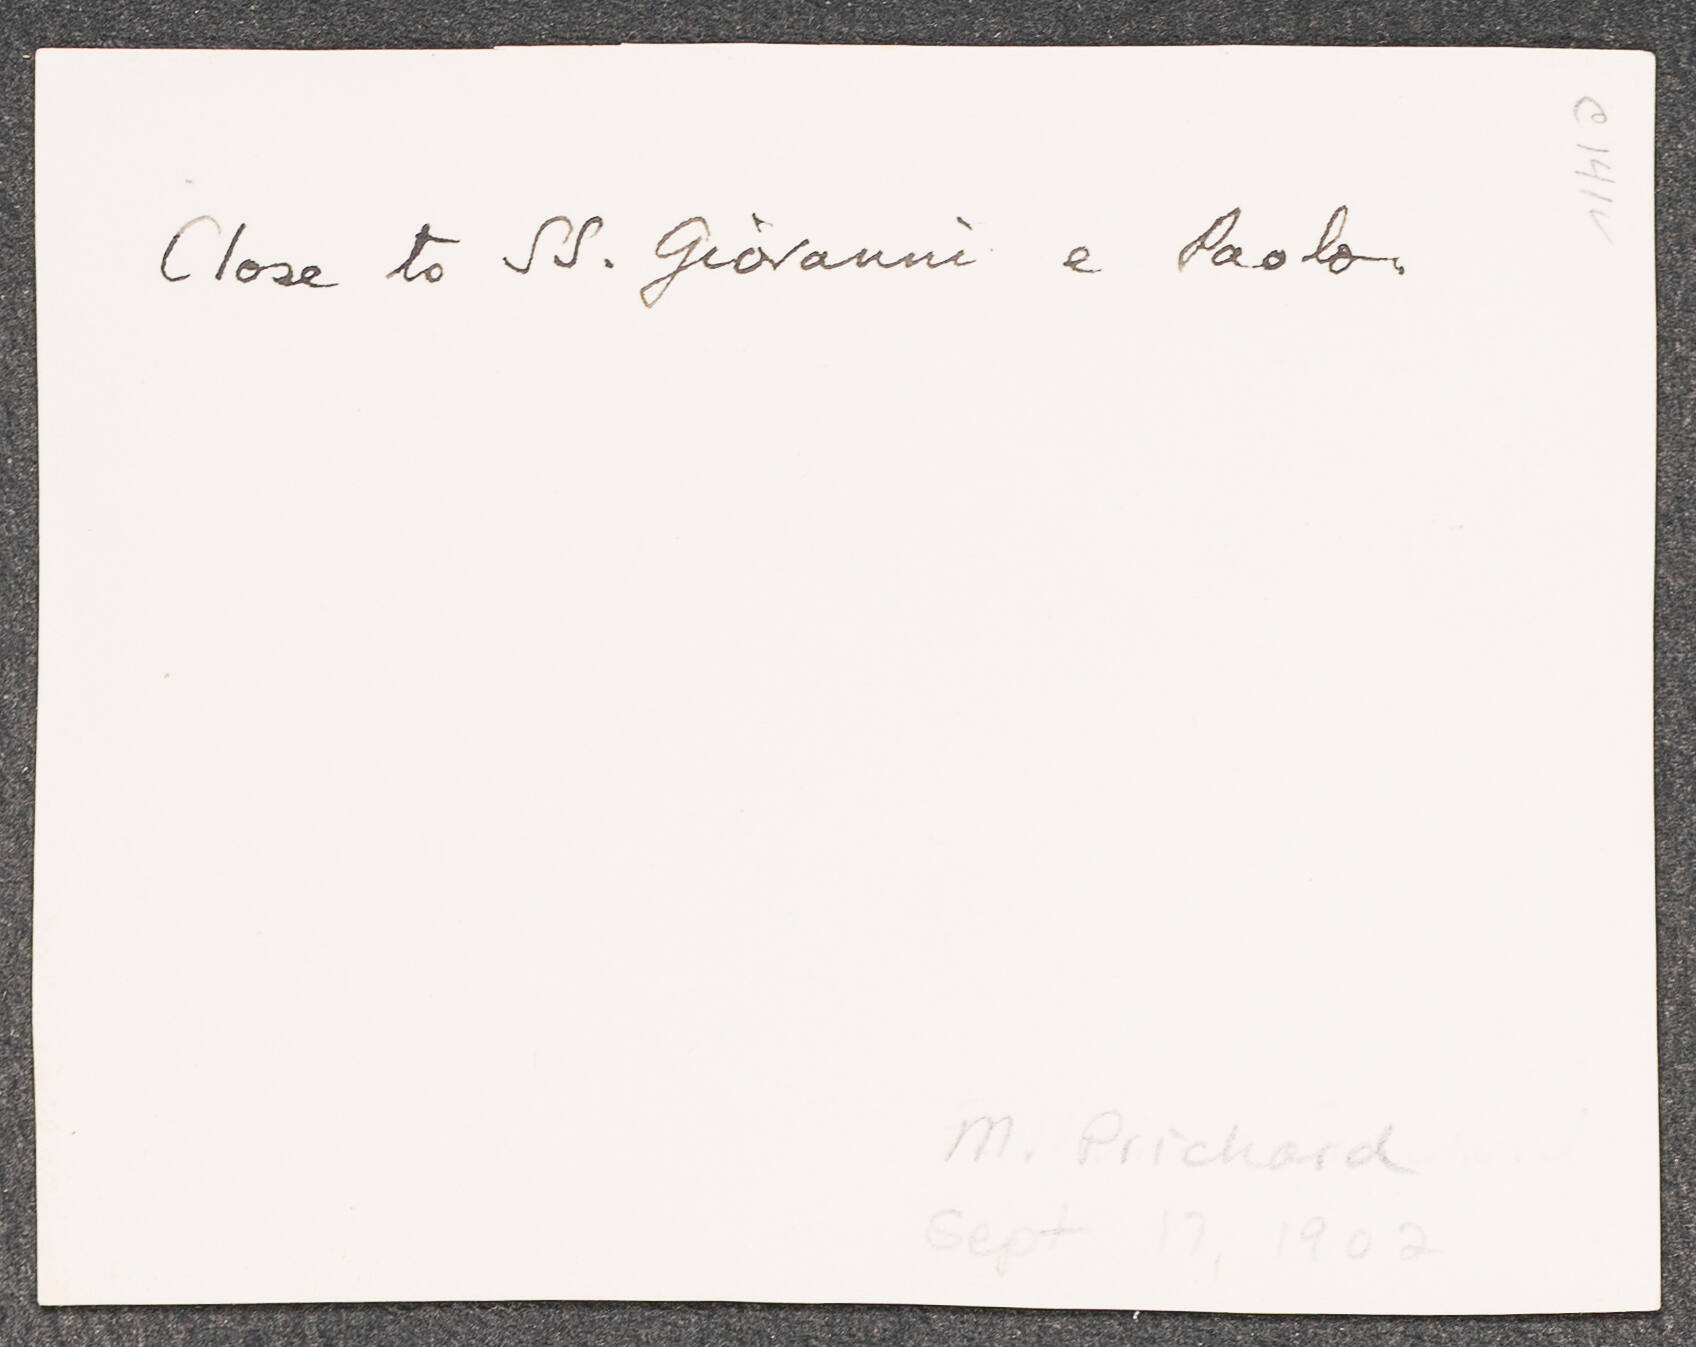 Close to SS. Giovanni e Paolo.
M. Prichard
Sept 17, 1902